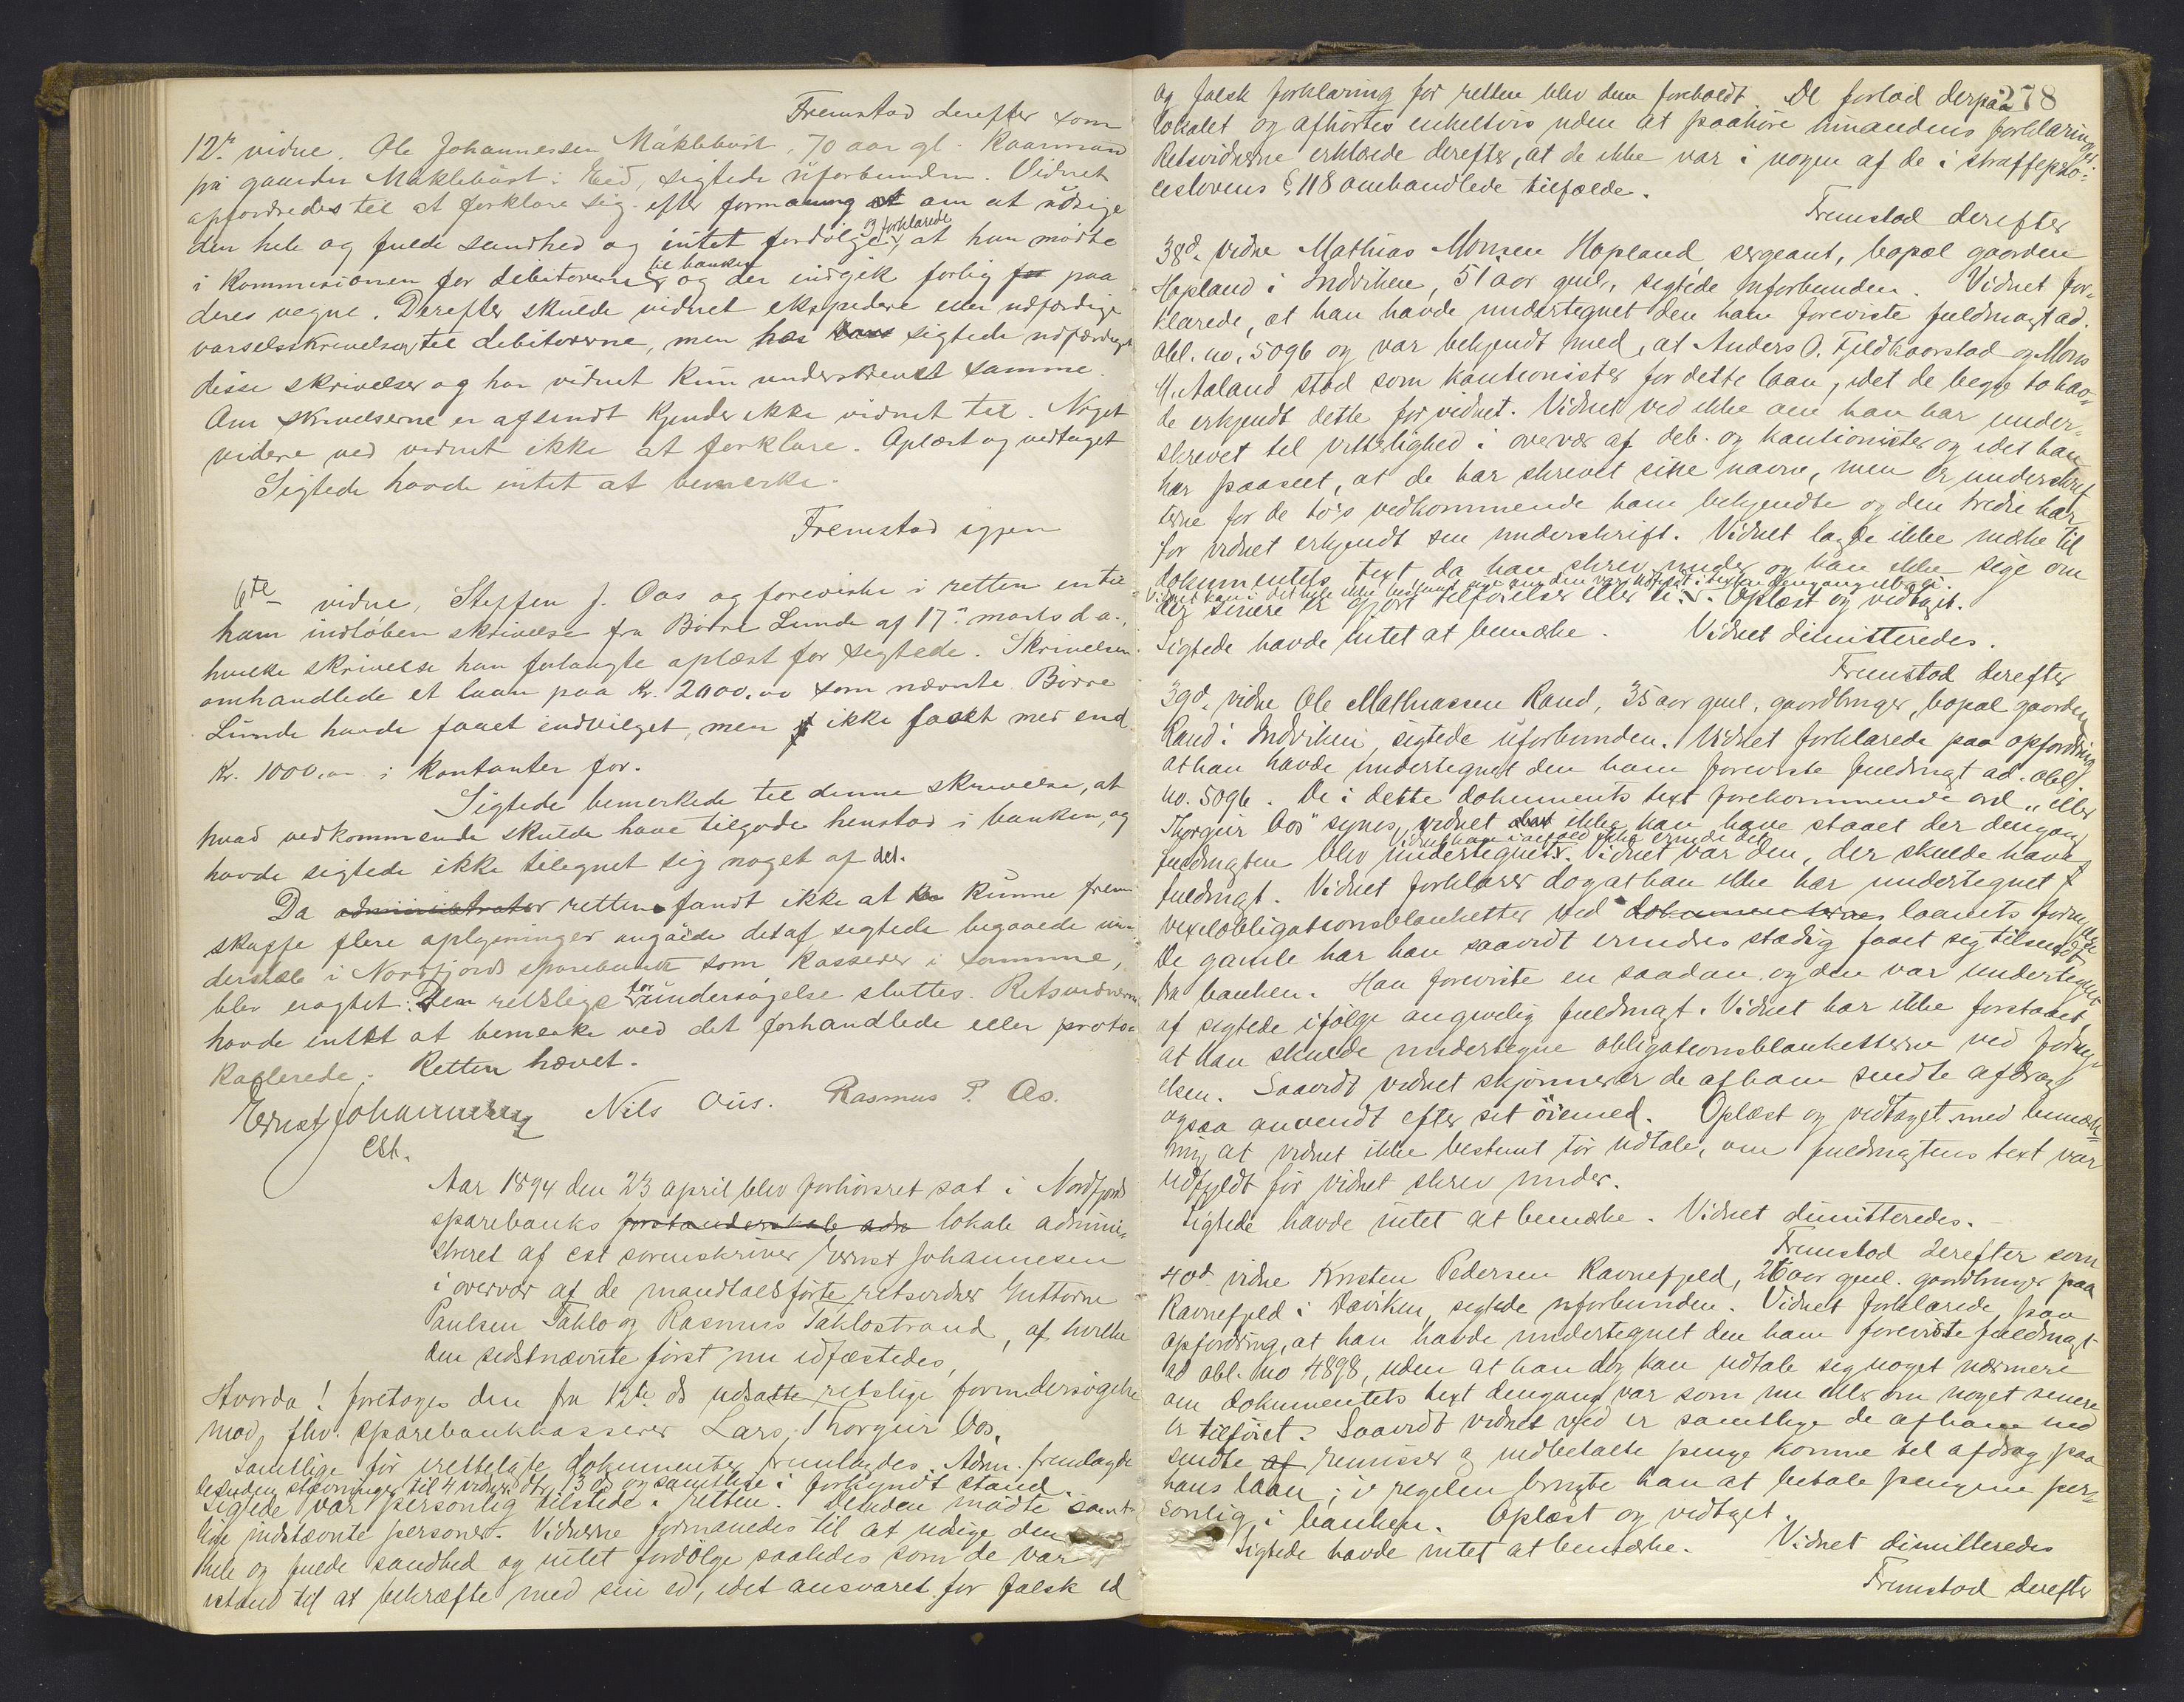 Fremstod derefter som
12te vidne. Ole Johannessen Mäklebüst, 70 aar gl. Kaarmand
på gaarden Mäklebüst i Eid, sigtede üforbunden. Vidnet
opfordredes til at forklare sig efter formaning at om at udsige
den hele og fulde sandhed og intet fordølge, og forklarede at han mødte
i kommissionen for debitorerne til banken og der indgik forlig for paa
deres vegne. Derefter skulde vidnet ekspedere eller udfærdige
varselsskrivelser til debitorerne, men har sigtede udfærdiget
disse skrivelser og har vidnet kun underskrevet samme.
Om skrivelserne er afsendt kjender ikke vidnet til. Noget
videre ved vidnet ikke at forklare. Oplæst og vedtaget
Sigtede havde intet at bemerke.
Fremstod igjen
6te vidne, Steffen J. Oos og foreviste i retten en til
ham indløben skrivelse fra Børre Lunde af 17de marts d.a.,
hvilke skrivelse han forlangte oplæst for sigtede. Skrivelsen
omhandlede et laan paa kr. 2000.00 som nævnte Børre
Lunde havde faaet indvilget, men ikke faaet mer end
kr. 1000.00 i kontanter for.
Sigtede bemerkede til denne skrivelse, at
hvad vedkommende skulde have tilgode henstod i banken, og
havde sigtede ikke tilegnet sig noget af det.
Da administrator retten fandt ikke at kunne frem
skaffe flere oplysninger angaaende det af sigtede begaaede un-
derslæb i Nordfjords sparebank som kasserer i samme,
blev eragtet: Den retslige forundersøgelse sluttes. Retsvidnerne
havde intet at bemerke ved det forhandlede eller proto-
kollerede. Retten hævet.
Ernst Johannesen Nils Oüs. Rasmus P. Os.
cst.
Aar 1894 den 23 april blev forhørsret sat i Nordfjords
sparebanks forstanderskab lokale admini-
streret af cst sorenskriver Ernst Johannesen
i overvær af de mandtalsførte retsvidner Guttorm
Paulsen Taklo og Rasmus Taklostrand, af hvilke
den sidstnævnte først nu edfæstedes,
Hvorda! foretoges den fra 12te ds udsatte retslige forundersøgelse
mod fhv. sparebankkasserer Lars Thorgeir Oos.
Samtlige før irettelagte dokumenter fremlagdes. Adm. fremlagde
desuden stævninger til 4 vidner dtr. 13 ds og samtlige i forkyndt stand.
Sigtede var personlig tilstede i retten. Desuden mødte samt-
lige indstævnte personer. Vidnerne formanedes til at udsige den
hele og fulde sandhed og intet fordølge saaledes som de var
istand til at bekræfte med sin ed, idet ansvaret for falsk ed
278
og falsk forklaring for retten blev dem foreholdt. De forlod derpaa
lokalet og afhørtes enkeltvis uden at paahøre hinandens forklaringer
Retsvidnerne erklærede derefter, at de ikke var i nogen af de i straffepro-
ceslovens § 118 omhandlede tilfælde.
Fremstod derefter
38d. vidne Mathias Monsen Hopland sergeant, bopæl gaarden
Hopland i Indviken, 51 aar gml, sigtede uforbunden. Vidnet for-
klarede, at han havde undertegnet den ham foreviste fuldmagt ad.
obl. no. 5096 og var bekjendt med, at Anders O. Fjeldkaarstad og Mons
M. Aaland stod som kautionister for dette laan, idet de begge to hav-
de erkjendt dette for vidnet. Vidnet ved ikke om han har under-
skrevet til vitterlighed i overvær af deb. og kautionister og idet han
har paaseet, at de har skrevet sine navne, men er underskrif
terne for de to's vedkommende ham bekjendte og den tredie har
for vidnet erkjendt sin underskrift. Vidnet lagde ikke mærke til
dokumentets text da han skrev under og kan ikke sige om
der senere er gjort tilføielser eller ei. Oplæst og vedtaget.
Sigtede havde intet at bemerke. Vidnet dimitteredes.
Fremstod derefter
39d. vidne Ole Mathiassen Rand, 35 aar gml, gaardbruger, bopæl gaarden
Rand i Indviken, sigtede uforbunden. Vidnet forklarede paa opfordring
at han havde undertegnet den ham foreviste fuldmagt ad. obl.
no. 5096. De i dette dokuments text forekommende ord "eller
Thorgeir Oos" synes vidnet ikke kan have staaet der dengang
fuldmagten blev undertegnet. Vidnet kan i alfald ikke erindre det. Vidnet var den, der skulde have
fuldmagt. Vidnet forklarer dog at han ikke har undertegnet
vexelobligationsblanketter ved dokumenternes laanets fornyelse
De gamle har han saavidt erindres stadig faaet sig tilsendt
fra banken. Han foreviste en saadan og den var undertegnet
af sigtede ifølge angivelig fuldmagt. Vidnet har ikke forstaaet,
at han skulde undertegne obligationsblanketterne ved forny-
elsen. Saavidt vidnet skjønner er de af ham sendte afdrag
ogsaa anvendt efter sit øiemed. Oplæst og vedtaget med bemærk-
ning at vidnet ikke bestemt tør udtale, om fuldmagtens text var
udfyldt før vidnet skrev under.
Sigtede havde intet at bemerke. Vidnet dimitteredes.
Fremstod derefter som
40d. vidne Kristen Pedersen Ravnefjeld, 26 aar gml. gaardbruger paa
Ravnefjeld i Daviken, sigtede uforbunden. Vidnet forklarede paa
opfordring, at han havde undertegnet den ham foreviste fuldmagt
ad obl. no 4898, uden at han dog kan udtale sig noget nærmere
om dokumentets text dengang var som nu eller om noget senere
er tilføiet. Saavidt vidnet ved er samtlige de af ham ned
sendte af remisser og indbetalte penge komne til afdrag paa
hans laan; i regelen brugte han at betale pengene per-
sonlig i banken. Oplæst og vedtaget.
Sigtede havde intet at bemerke. Vidnet dimitteredes
Fremstod derefter